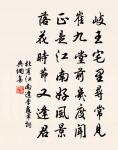 岐王宅里尋常見
崔九堂前幾度聞
正是江南好風景
落花時節又逢君
杜甫江南逢李龜年詞